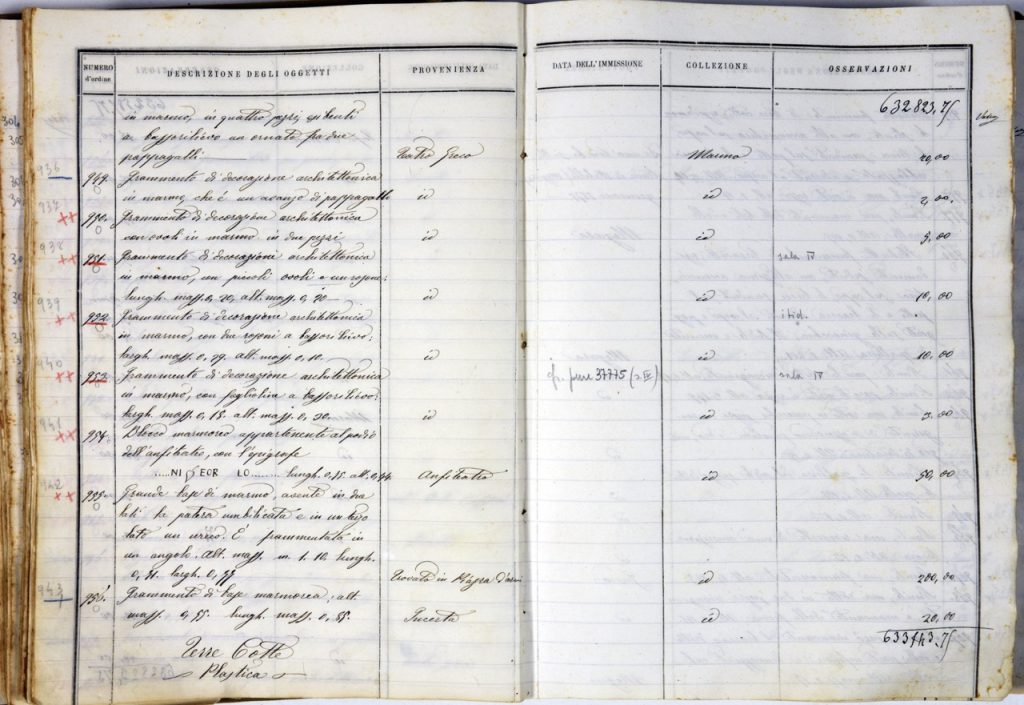 NUMERO d'ordine DESCRIZIONE DEGLI OGGETTI PROVENIENZA DATA DELL'IMMISSIONE COLLEZIONE OSSERVAZIONI
632823.75
in marmo, in quattro pezzi, esibenti
a bassorilievo un ornato fra due
pappagalli Teatro Greco Marmo 20,00
936 949. Frammento di decorazione architettonica
in marmo, che è un avanzo di pappagallo id id 2,00
937 950. Frammento di decorazione architettonica
con ovoli in marmo in due pezzi id id 5,00
938 951. Frammento di decorazione architettonica sala IV
in marmo, un piccoli ovoli e un rosone;
lungh. mass. 0,20, alt. mass. 0,20 id id 10,00
939 952. Frammento di decorazione architettonica ibid.
in marmo, con due rosoni a bassorilievo;
largh. mass. 0,29. alt. mass. 0,10. id id 10.00
940 953. Frammento di decorazione architettonica cfr. pure 37775 (s. IV) sala IV
in marmo, con fogliolina a bassorilievo;
largh. mass. 0,15. alt. mass. 0,20. id id 3.00
941 954. Blocco marmoreo appartenente al podio
dell'anfiteatro, con l'epigrafe
.....NI FEOR LO....... lungh. 0,95. alt. 0,44. Anfiteatro id 50,00
942 955. Grande base di marmo, avente in due
lati la patera umbilicata e in un terzo
lato un urceo. È frammentata in
un angolo. Alt. mass. m. 1.10, lungh.
0,71. largh. 0,77 Trovata in Piazza d'armi id 200,00
943 956. Frammento di base marmorea; alt.
mass. 0,55. lungh. mass. 0,85. Incerta id 20.00
633143.75
Terre Cotte
Plastica